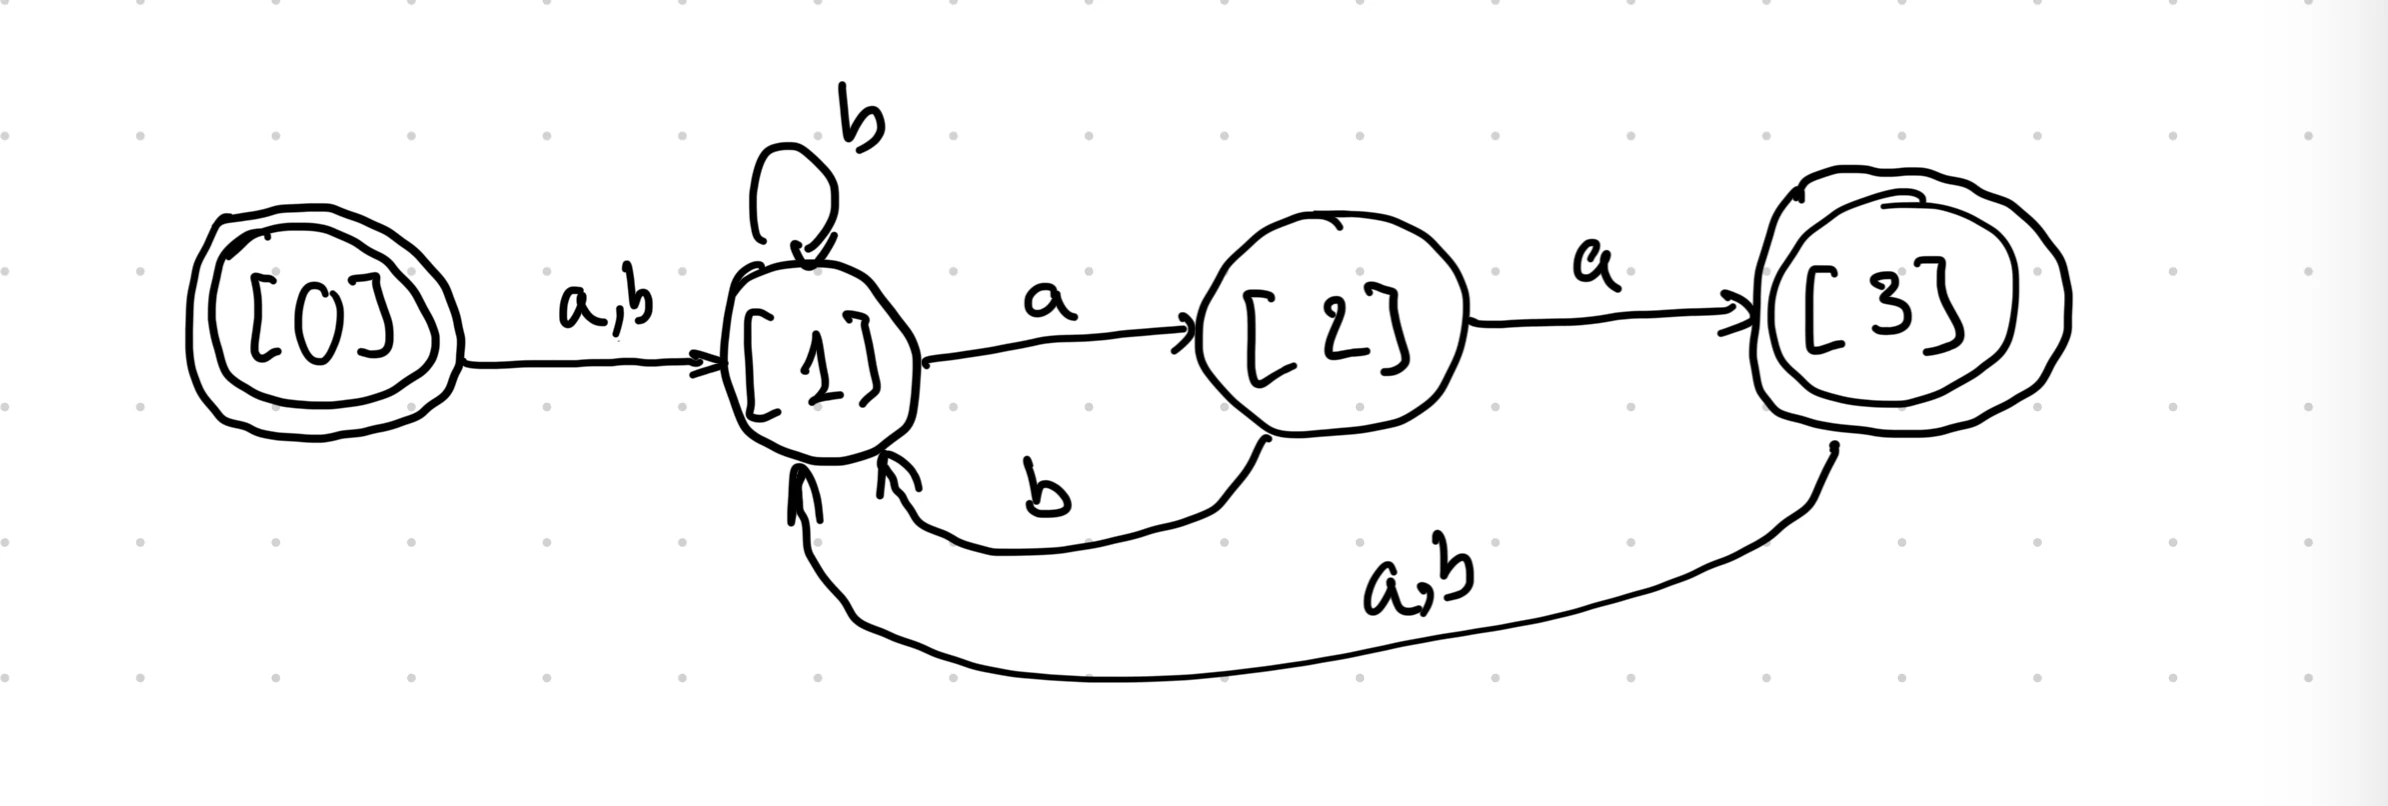 b
[0] a,b [1] a [2] a [3]
b
a,b